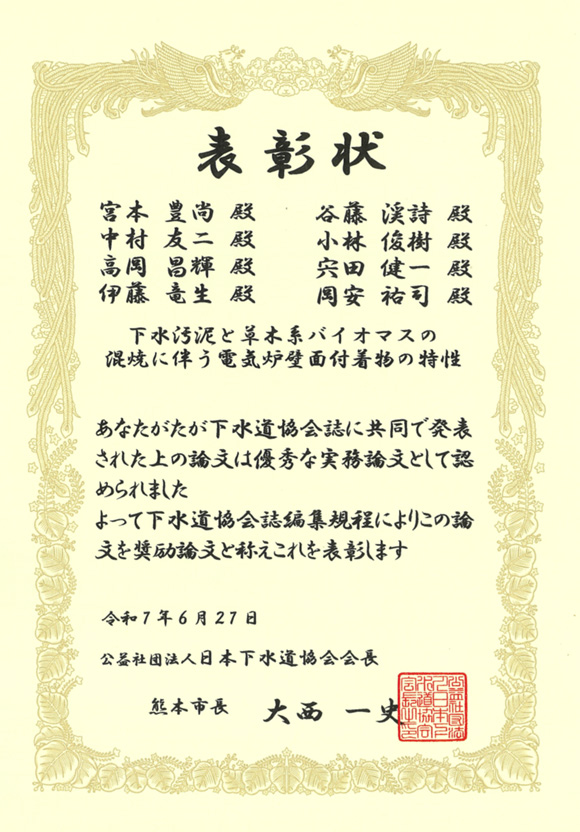 表彰状
宮本 豊尚 殿 谷藤 渓詩 殿
中村 友二 殿 小林 俊樹 殿
高岡 昌輝 殿 宍田 健一 殿
伊藤 竜生 殿 岡安 祐司 殿
下水汚泥と草木系バイオマスの
混焼に伴う電気炉壁面付着物の特性
あなたがたが下水道協会誌に共同で発表
された上の論文は優秀な実務論文として認
められました
よって下水道協会誌編集規程によりこの論
文を奨励論文と称えこれを表彰します
令和7年6月27日
公益社団法人日本下水道協会会長
熊本市長 大西 一史